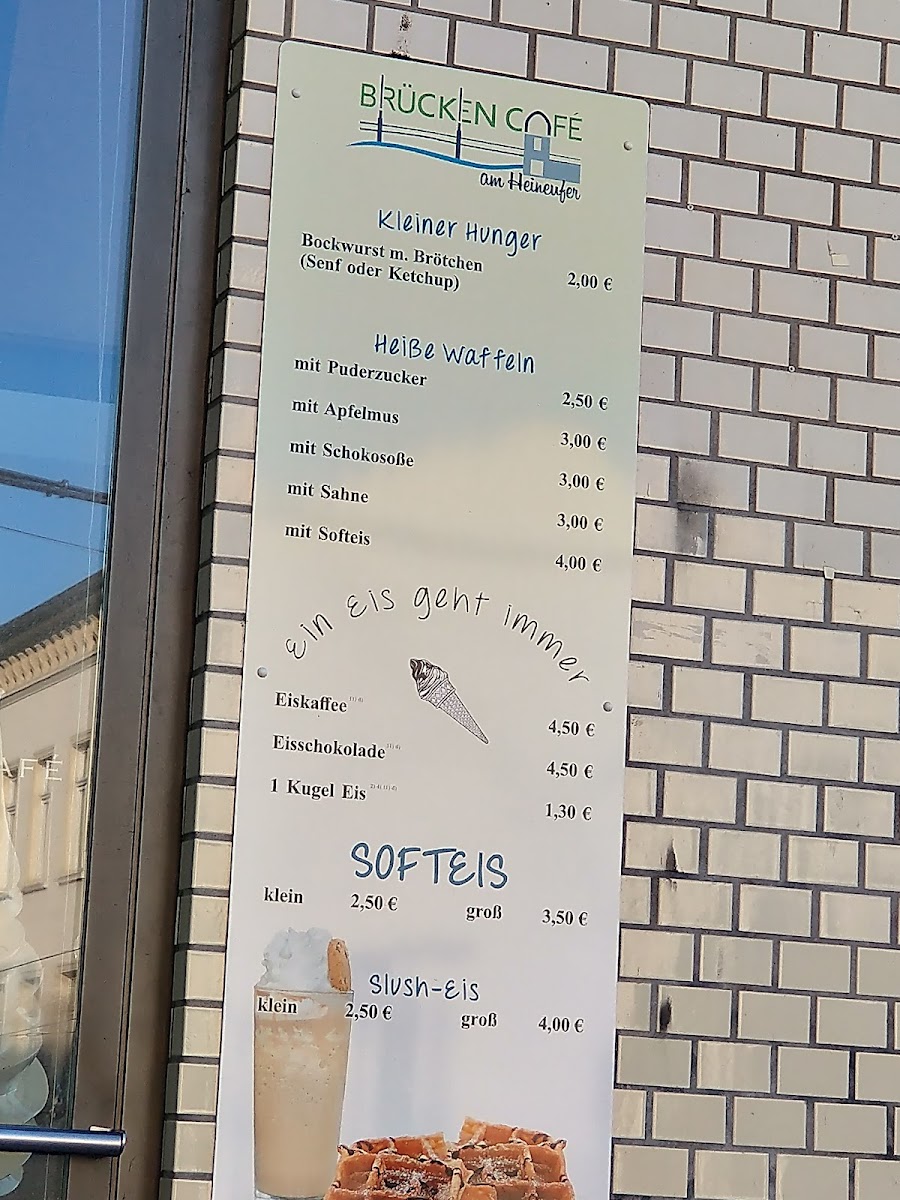 BRÜCKEN CAFÉ
am Heineufer
Kleiner Hunger
Bockwurst m. Brötchen
(Senf oder Ketchup) 2,00 €
Heiße Waffeln
mit Puderzucker 2,50 €
mit Apfelmus 3,00 €
mit Schokosoße 3,00 €
mit Sahne 3,00 €
mit Softeis 4,00 €
Ein Eis geht immer
Eiskaffee 4,50 €
Eisschokolade 4,50 €
1 Kugel Eis 1,30 €
SOFTEIS
klein 2,50 € groß 3,50 €
Slush-Eis
klein 2,50 € groß 4,00 €
AFÉ